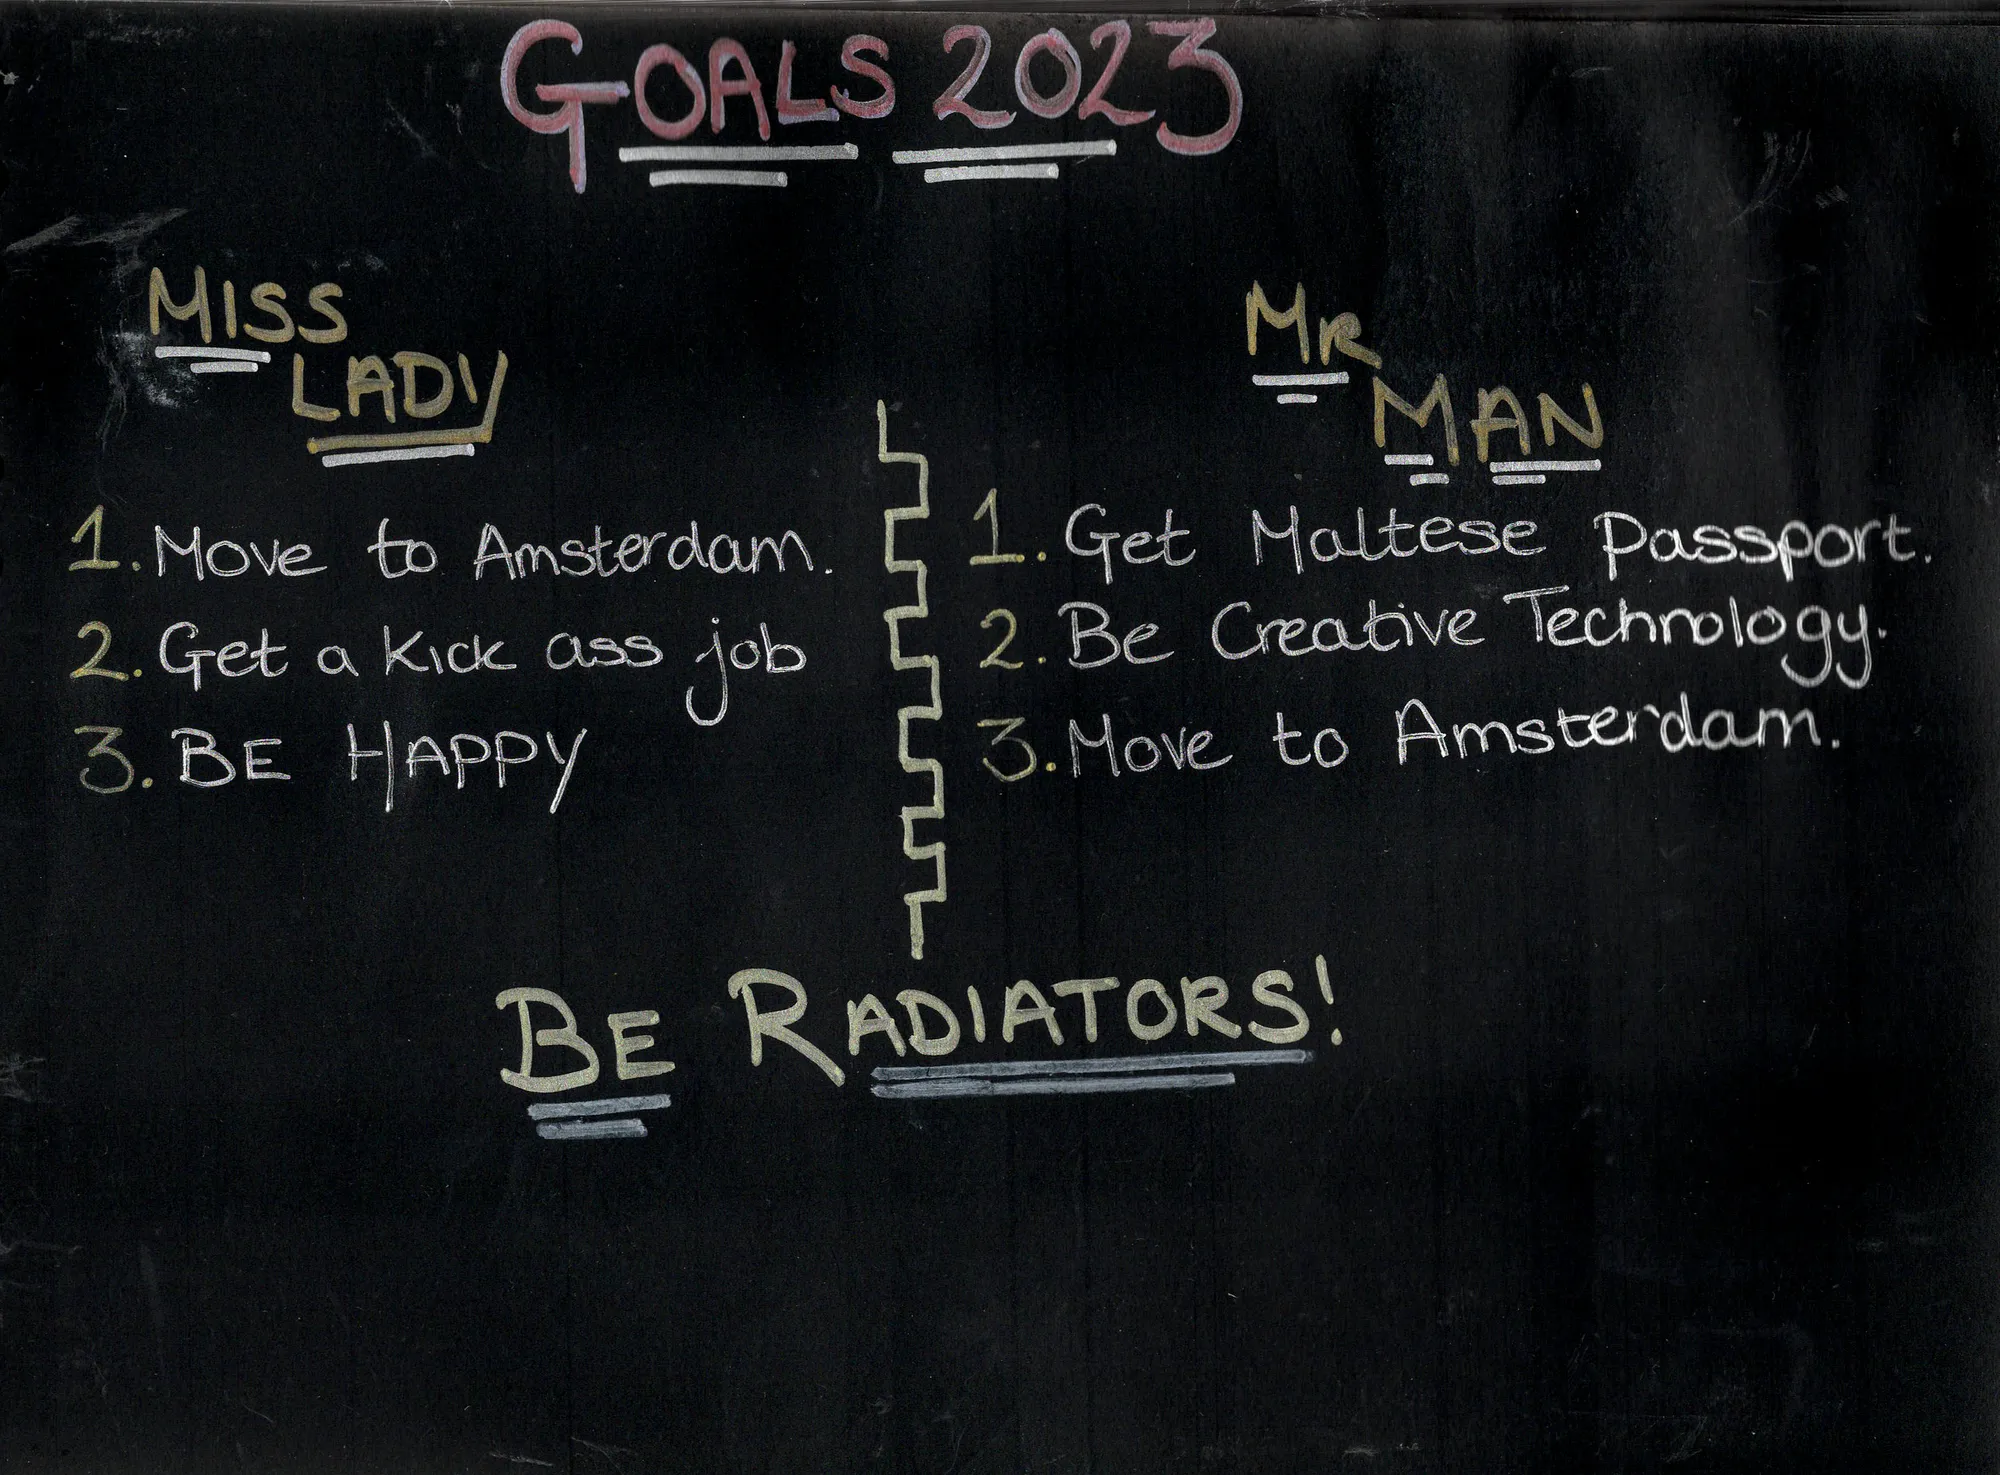 GOALS 2023
MISS
LADY
1. Move to Amsterdam.
2. Get a kick ass job
3. BE HAPPY
MR
MAN
1. Get Maltese Passport.
2. Be Creative Technology.
3. Move to Amsterdam.
BE RADIATORS!